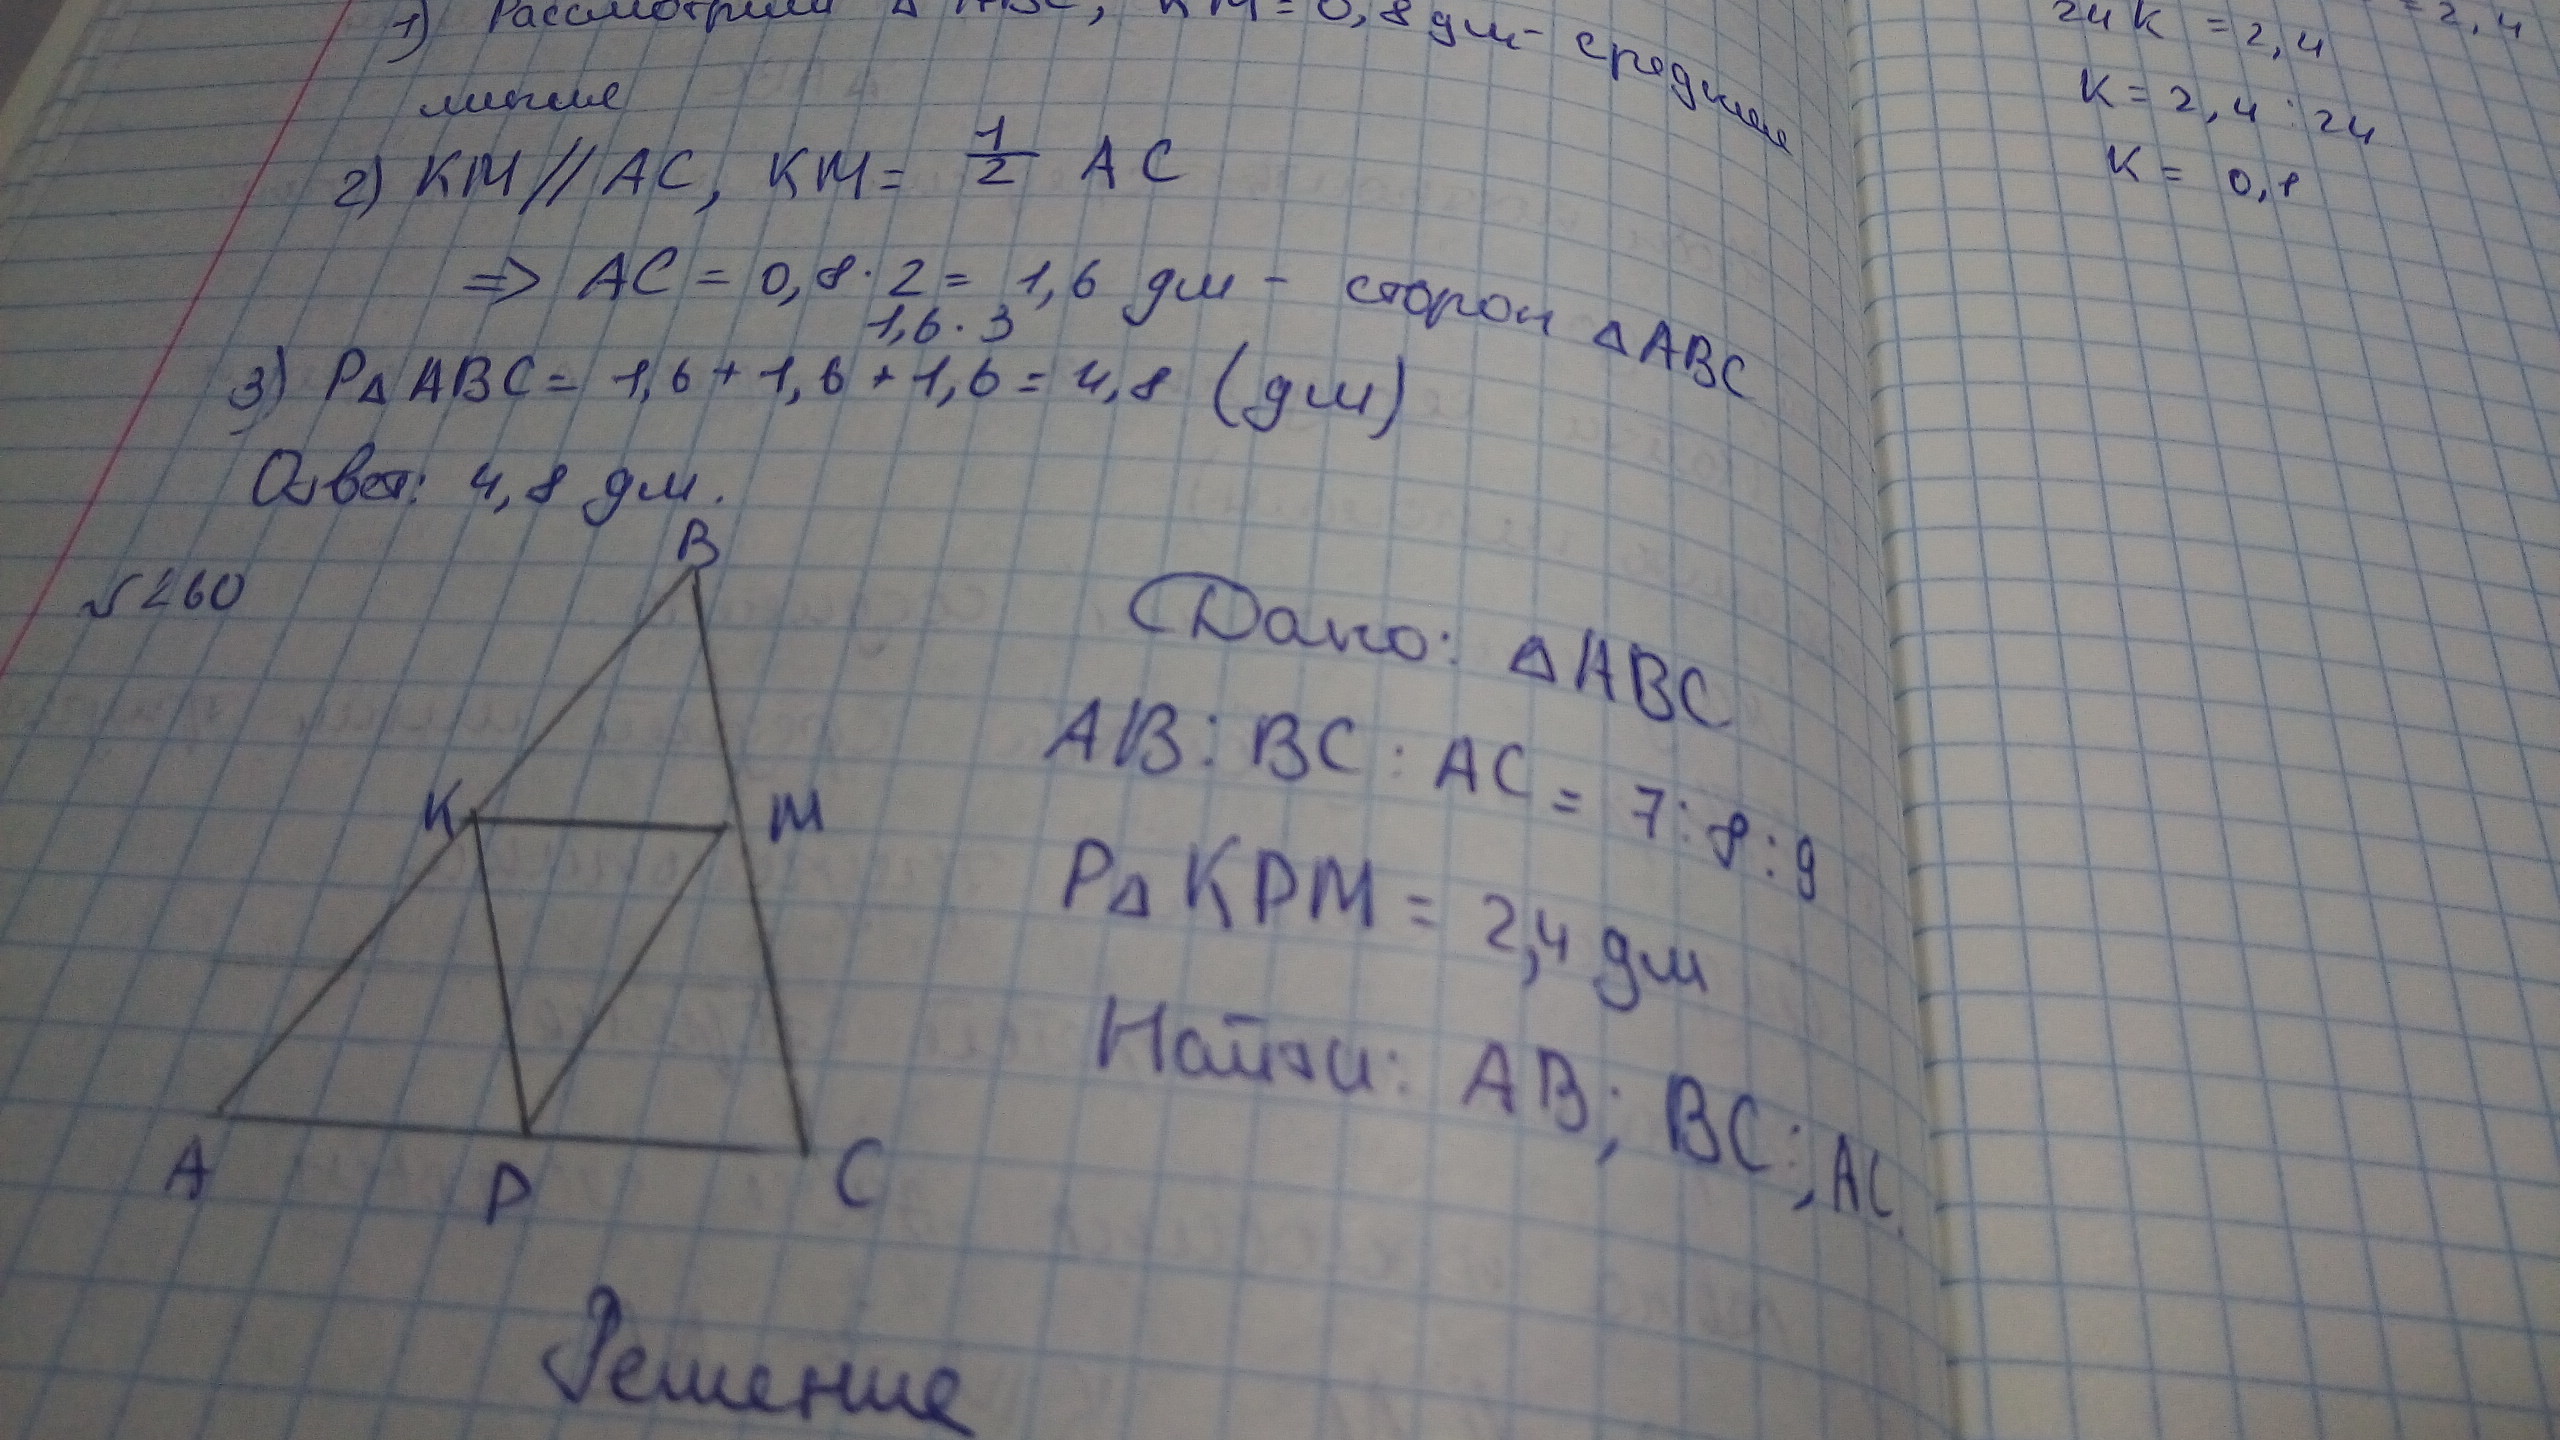 1) Рассмотрим △ABC, KM = 0,8 дм - средние
линие
2) KM // AC, KM = 1/2 AC
=> AC = 0,8 · 2 = 1,6 дм - сторон △ABC
1,6 · 3
3) P△ABC = 1,6 + 1,6 + 1,6 = 4,8 (дм)
Ответ: 4,8 дм.
№260
B
K
M
A
P
C
Дано: △ABC
AB : BC : AC = 7 : 8 : 9
P△KPM = 2,4 дм
Найти: AB; BC; AC.
Решение
= 2,4
24K = 2,4
K = 2,4 : 24
K = 0,1